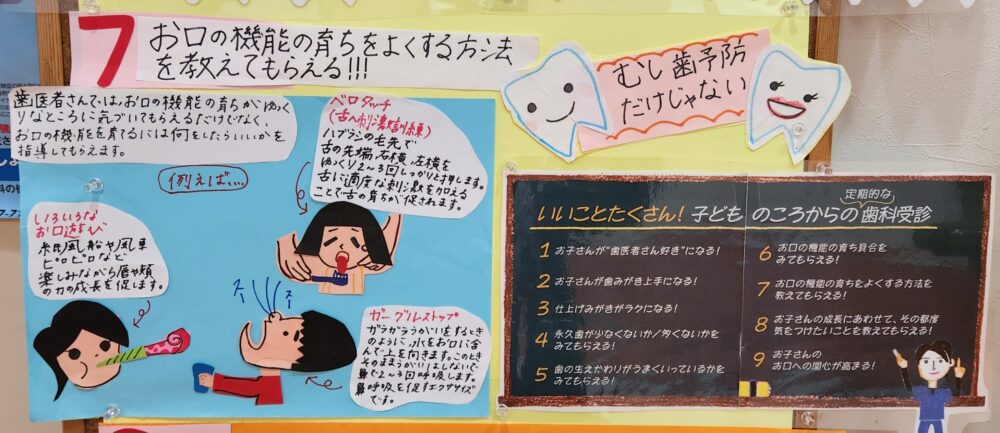 7
お口の機能の育ちをよくする方法
を教えてもらえる!!!
むし歯予防
だけじゃない
歯医者さんでは、お口の機能の育ちがゆっく
りなところに気づいてもらえるだけじなく、
お口の機能を育てるには何をしたらいいかを
指導してもらえます。
例えば…
ベロタッチ
(舌への刺激訓練)
ハブラシの毛先で
舌の先端、右横、左横を
ゆっくり2〜3回しっかりと押します。
舌に適度な刺激を加える
ことで舌の育ちが促されます。
いろいろな
お口遊び
紙風船や風車
ピロピロなど
楽しみながら唇や頬
の力の成長を促します。
スー
スー
ガーグルストップ
ガラガラうがいをするとき
のように、水をお口に含
んで上を向きます。このとき
そのままうがいはしないで
鼻で2〜3回呼吸します。
鼻呼吸を促すエクササイズ
です。
いいことたくさん!子どものころからの定期的な歯科受診
1 お子さんが“歯医者さん好き”になる!
2 お子さんが歯みがき上手になる!
3 仕上げみがきがラクになる!
4 永久歯が少なくないか/多くないかを
みてもらえる!
5 歯の生えかわりがうまくいっているかを
みてもらえる!
6 お口の機能の育ち具合を
みてもらえる!
7 お口の機能の育ちをよくする方法を
教えてもらえる!
8 お子さんの成長にあわせて、その都度
気をつけたいことを教えてもらえる!
9 お子さんの
お口への関心が高まる!